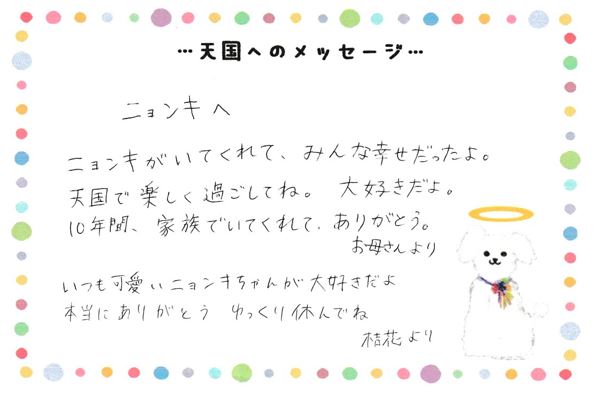 …天国へのメッセージ…
ニョンキへ
ニョンキがいてくれて、みんな幸せだったよ。
天国で楽しく過ごしてね。 大好きだよ。
10年間、家族でいてくれて、ありがとう。
お母さんより
いつも可愛いニョンキちゃんが大好きだよ
本当にありがとう ゆっくり休んでね
桔花より